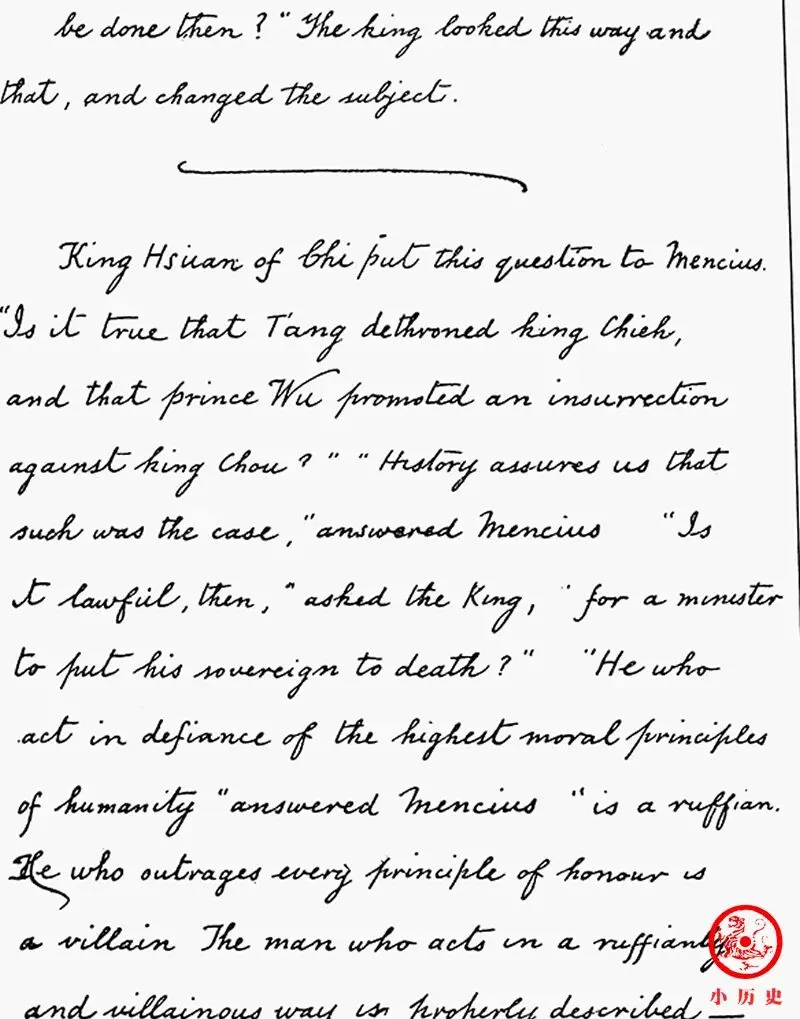 be done then? "The king looked this way and
that, and changed the subject.
King Hsüan of Chi put this question to Mencius.
"Is it true that T'ang dethroned king Chieh,
and that prince Wu promoted an insurrection
against king Chou?" "History assures us that
such was the case," answered Mencius "Is
it lawful, then," asked the King, "for a minister
to put his sovereign to death?" "He who
act in defiance of the highest moral principles
of humanity" answered Mencius "is a ruffian.
He who outrages every principle of honour is
a villain The man who acts in a ruffianly
and villainous way is properly described
小历史